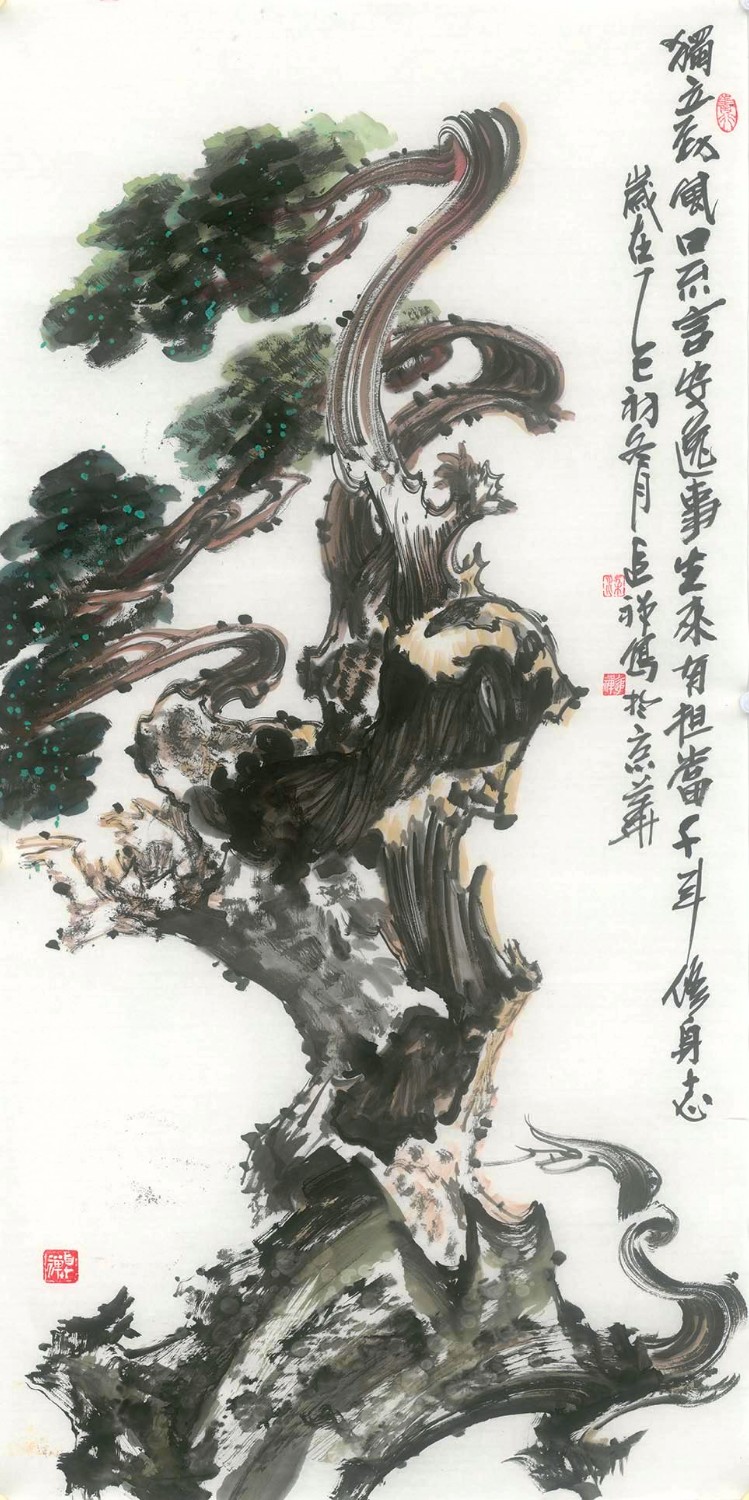 獨立勁風口不言安逸事生來有担當千年修身志
歲在丁巳初冬月祥寫於京華